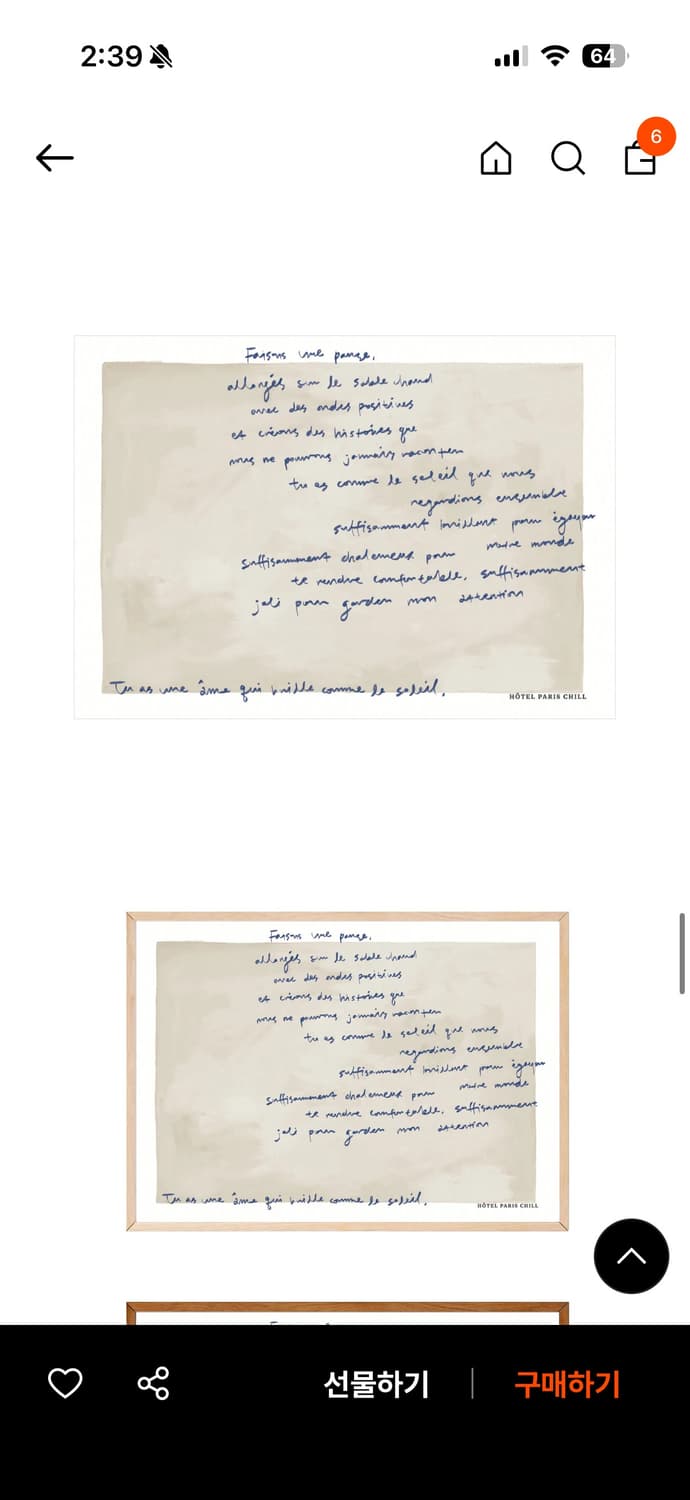 2:39
64
6
Faisons une pause,
allongés sur le sable chaud
avec des ondes positives
et créons des histoires que
nous ne pourrons jamais raconter
tu es comme le soleil que nous
regardions ensemble
suffisamment brillant pour égayer
notre monde
suffisamment chaleureux pour
te rendre confortable, suffisamment
joli pour garder mon attention
Tu as une âme qui brille comme le soleil.
HÔTEL PARIS CHILL
Faisons une pause,
allongés sur le sable chaud
avec des ondes positives
et créons des histoires que
nous ne pourrons jamais raconter
tu es comme le soleil que nous
regardions ensemble
suffisamment brillant pour égayer
notre monde
suffisamment chaleureux pour
te rendre confortable, suffisamment
joli pour garder mon attention
Tu as une âme qui brille comme le soleil.
HÔTEL PARIS CHILL
선물하기
구매하기